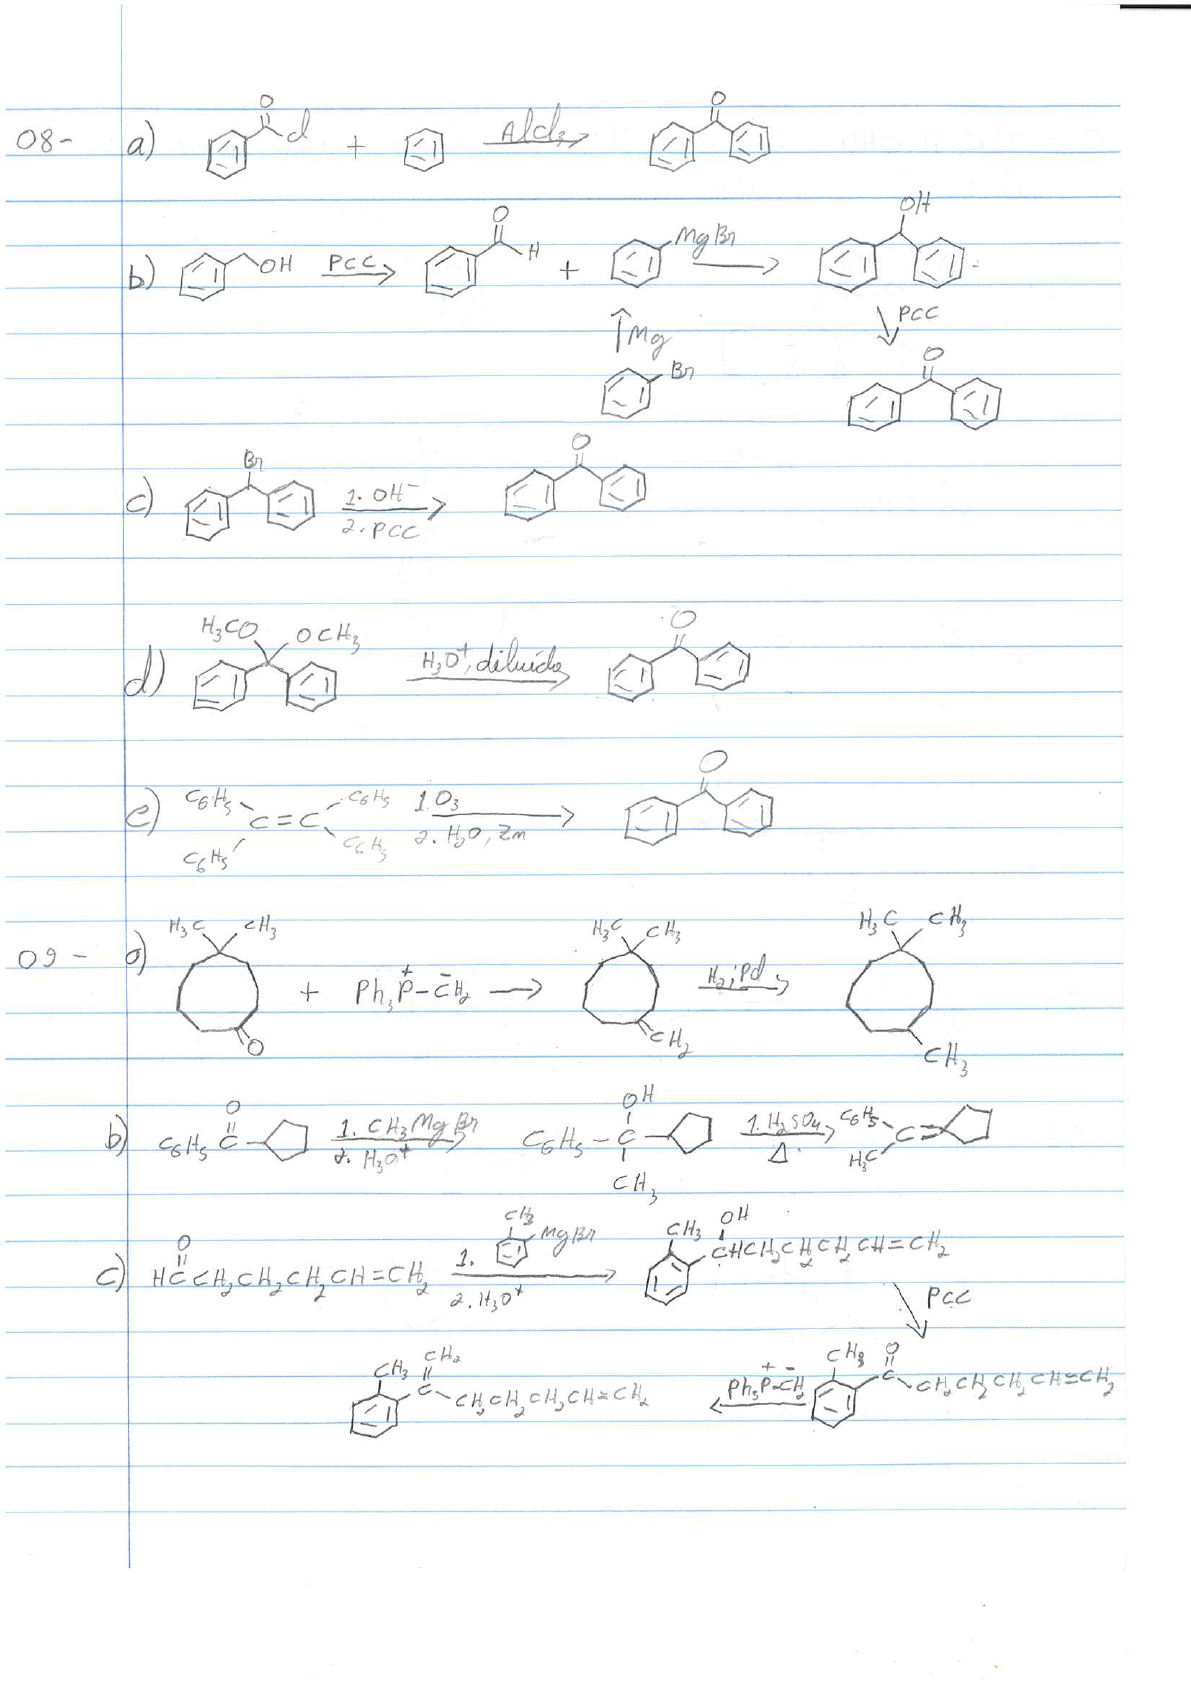 08- a) O Cl + AlCl₃ → O
b) OH PCC → O H + MgBr → OH
↑Mg ↓PCC
Br O
c) Br 1. OH⁻ 2. PCC → O
d) H₃CO OCH₃ H₃O⁺, diluído → O
e) C₆H₅ C₆H₅ C=C C₆H₅ C₆H₅ 1. O₃ 2. H₂O, Zn → O
09- a) H₃C CH₃ O + Ph₃P⁺-C⁻H₂ → H₃C CH₃ CH₂ H₂, Pd → H₃C CH₃ CH₃
b) C₆H₅ C O 1. CH₃MgBr 2. H₃O⁺ → C₆H₅-C OH CH₃ 1. H₂SO₄ Δ → C₆H₅ H₃C C=
c) O HCCH₂CH₂CH₂CH=CH₂ 1. CH₃ MgBr 2. H₃O⁺ → CH₃ OH CHCH₂CH₂CH₂CH=CH₂
↓ PCC
CH₃ CH₂ C CH₂CH₂CH₂CH=CH₂ ← Ph₃P⁺-C⁻H₂ CH₃ O C CH₂CH₂CH₂CH=CH₂